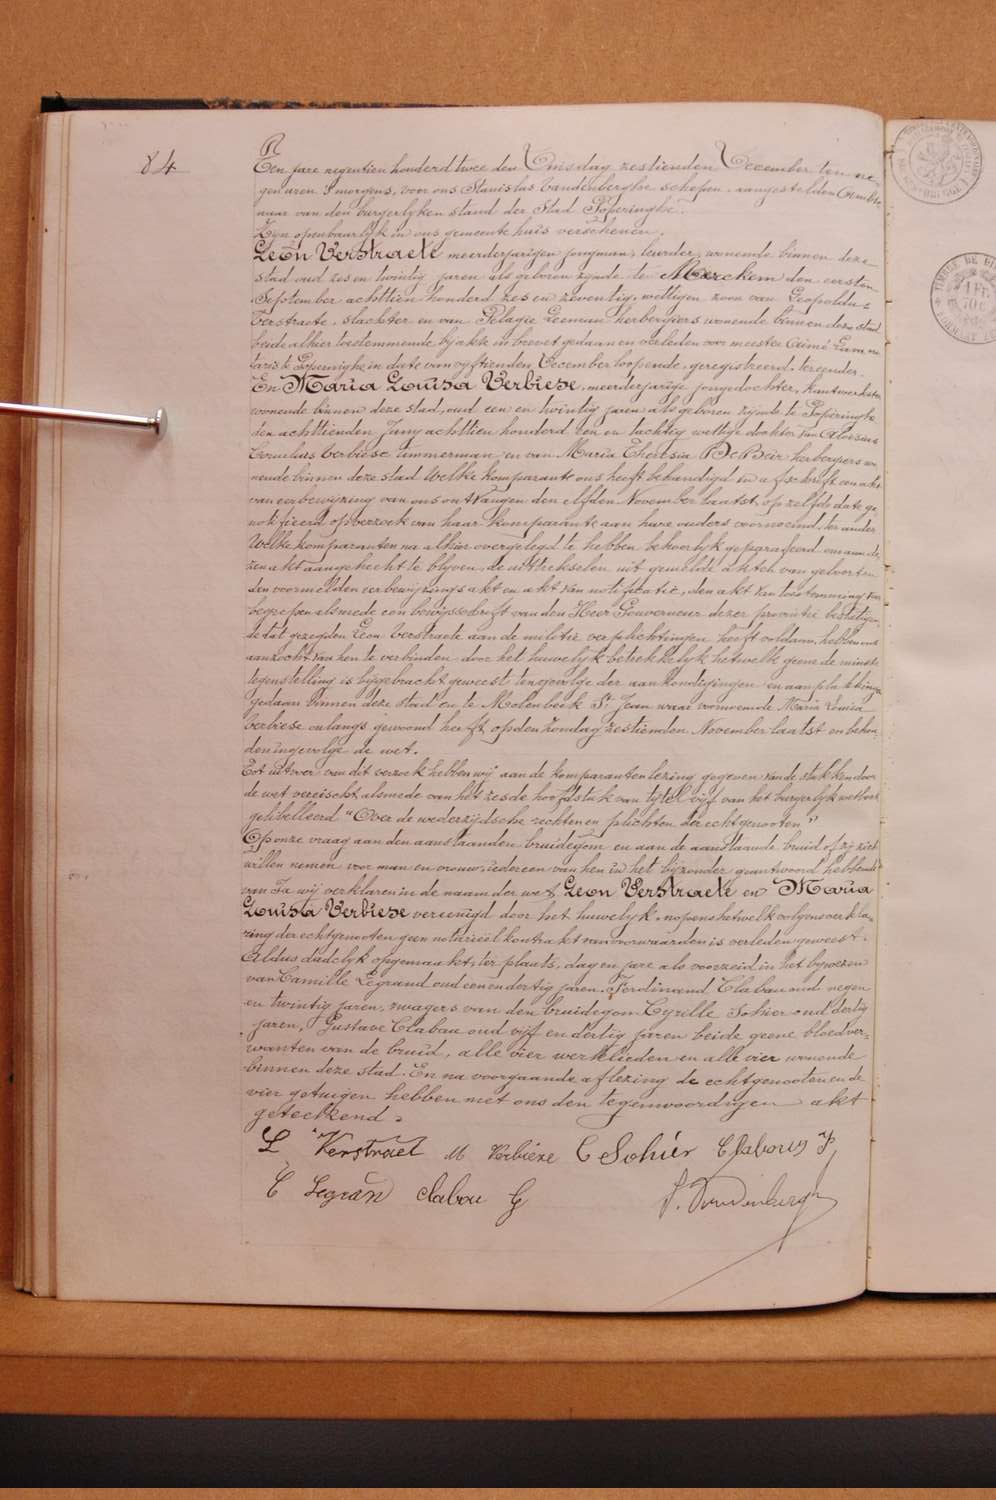 84
Een jare negentien honderd twee den Dinsdag zestienden December ten ne-
gen uren 's morgens, voor ons Stanislas Vandenberghe schepen, aangestelden Ambte-
naar van den burgerlyken stand der Stad Poperinghe.
Zyn openbaarlyk in ons gemeentehuis verschenen.
Leon Verstraete meerderjarigen jongman, leurder, wonende binnen deze
stad oud zes en twintig jaren als geboren zynde te Merckem den eersten
September achttien honderd zes en zeventig, wettigen zoon van Leopoldus
Verstraete, slachter en van Pelagie Leeman herbergiers wonende binnen deze stad
beide alhier toestemmende by akte in brevet gedaan en verleden voor meester Aimé Lava no-
taris te Poperinghe in date van vyftienden December loopende, geregistreerd, tereender.
En Maria Louisa Verbiese, meerderjarige jongedochter, kantwerkster
wonende binnen deze stad, oud een en twintig jaren als geboren zynde te Poperinghe
den achttienden Juny achttien honderd een en tachtig wettige dochter van Aloisius
Cornelius Verbiese timmerman en van Maria Theresia De Beir herbergiers wo-
nende binnen deze stad Welke komparante ons heeft behandigd en afschrift een akte
van eerbewyzing van ons ontvangen den elfden November laatst, op zelfde date ge-
notifieerd op verzoek van haar komparante aan hare ouders voornoemd, ter ander
Welke komparanten na alhier overgelegd te hebben behoorlyk geparafeerd om aan de-
zen akt aangehecht te blyven, de uittrekselen uit gemelde akten van geboorten
den voormelden eerbewyzings akt en akt van notificatie, den akt van toestemming
begrepen alsmede een bewysschrift van den Heer Gouverneur dezer provintie bestatigen-
de dat gezegden Leon Verstraete aan de militie verplichtingen heeft voldaan, hebben ons
aanzocht van hen te verbinden door het huwelyk betrekkelyk hetwelk geene de minste
tegenstelling is bygebracht geweest tengevolge der aankondigingen en aanplakkingen
gedaan binnen deze stad en te Molenbeek St Jean waar vernoemde Maria Louisa
Verbiese onlangs gewoond heeft op den zondag zestienden November laatst en behou-
den ingevolge de wet.
Tot uitvoer van dit verzoek hebben wij aan de komparanten lezing gegeven van de stukken door
de wet vereischt alsmede van het zesde hoofdstuk van tytel vijf van het burgerlyk wetboek
gelibelleerd "Over de wederzijdsche rechten en plichten der echtgenooten"
Op onze vraag aan den aanstaanden bruidegom en aan de aanstaande bruid of zij zich
willen nemen voor man en vrouw, iedereen van hen in het bijzonder geantwoord hebbende
van Ja wij verklaren in de naam der wet Leon Verstraete en Maria
Louisa Verbiese vereenigd door het huwelyk, nopens hetwelk volgens verkla-
ring der echtgenooten geen notarieel kontrakt van voorwaarden is verleden geweest.
Aldus duidelyk opgemaakt, ter plaats, dag en jare als voorzeid in het bywezen
van Camille Legrand oud een en dertig jaren, Ferdinand Clabau oud negen
en twintig jaren, zwagers van den bruidegom Cyrille Sohier oud dertig
jaren, Gustave Clabau oud vijf en dertig jaren beide geene bloedver-
wanten van de bruid, alle vier werklieden en alle vier wonende
binnen deze stad. En na voorgaande aflezing de echtgenooten en de
vier getuigen hebben met ons den tegenwoordigen akt
geteekend.
L Verstraet M Verbieze C Sohier Clabouy F
C Legran Clabou G S. Vandenberghe